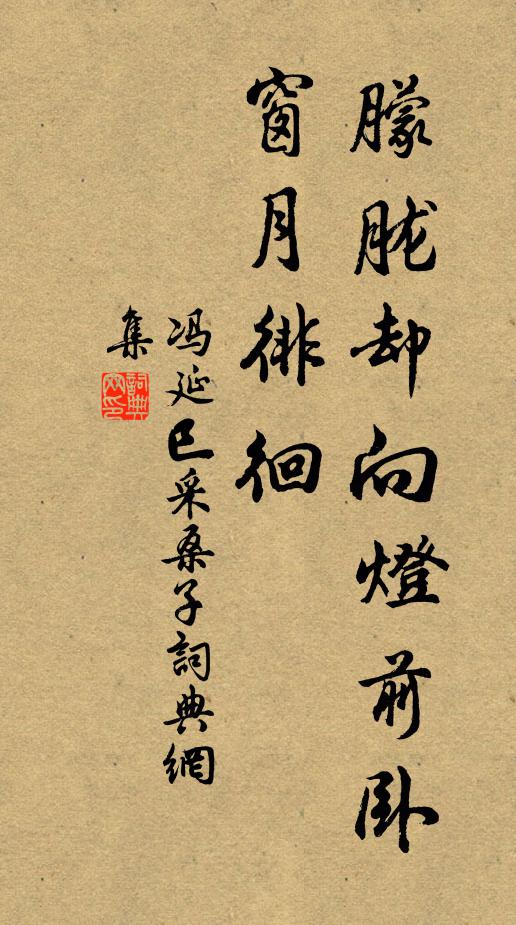 朦胧却向燈前卧
窗月徘徊
冯延巳采桑子詞典網
集
詞典網印